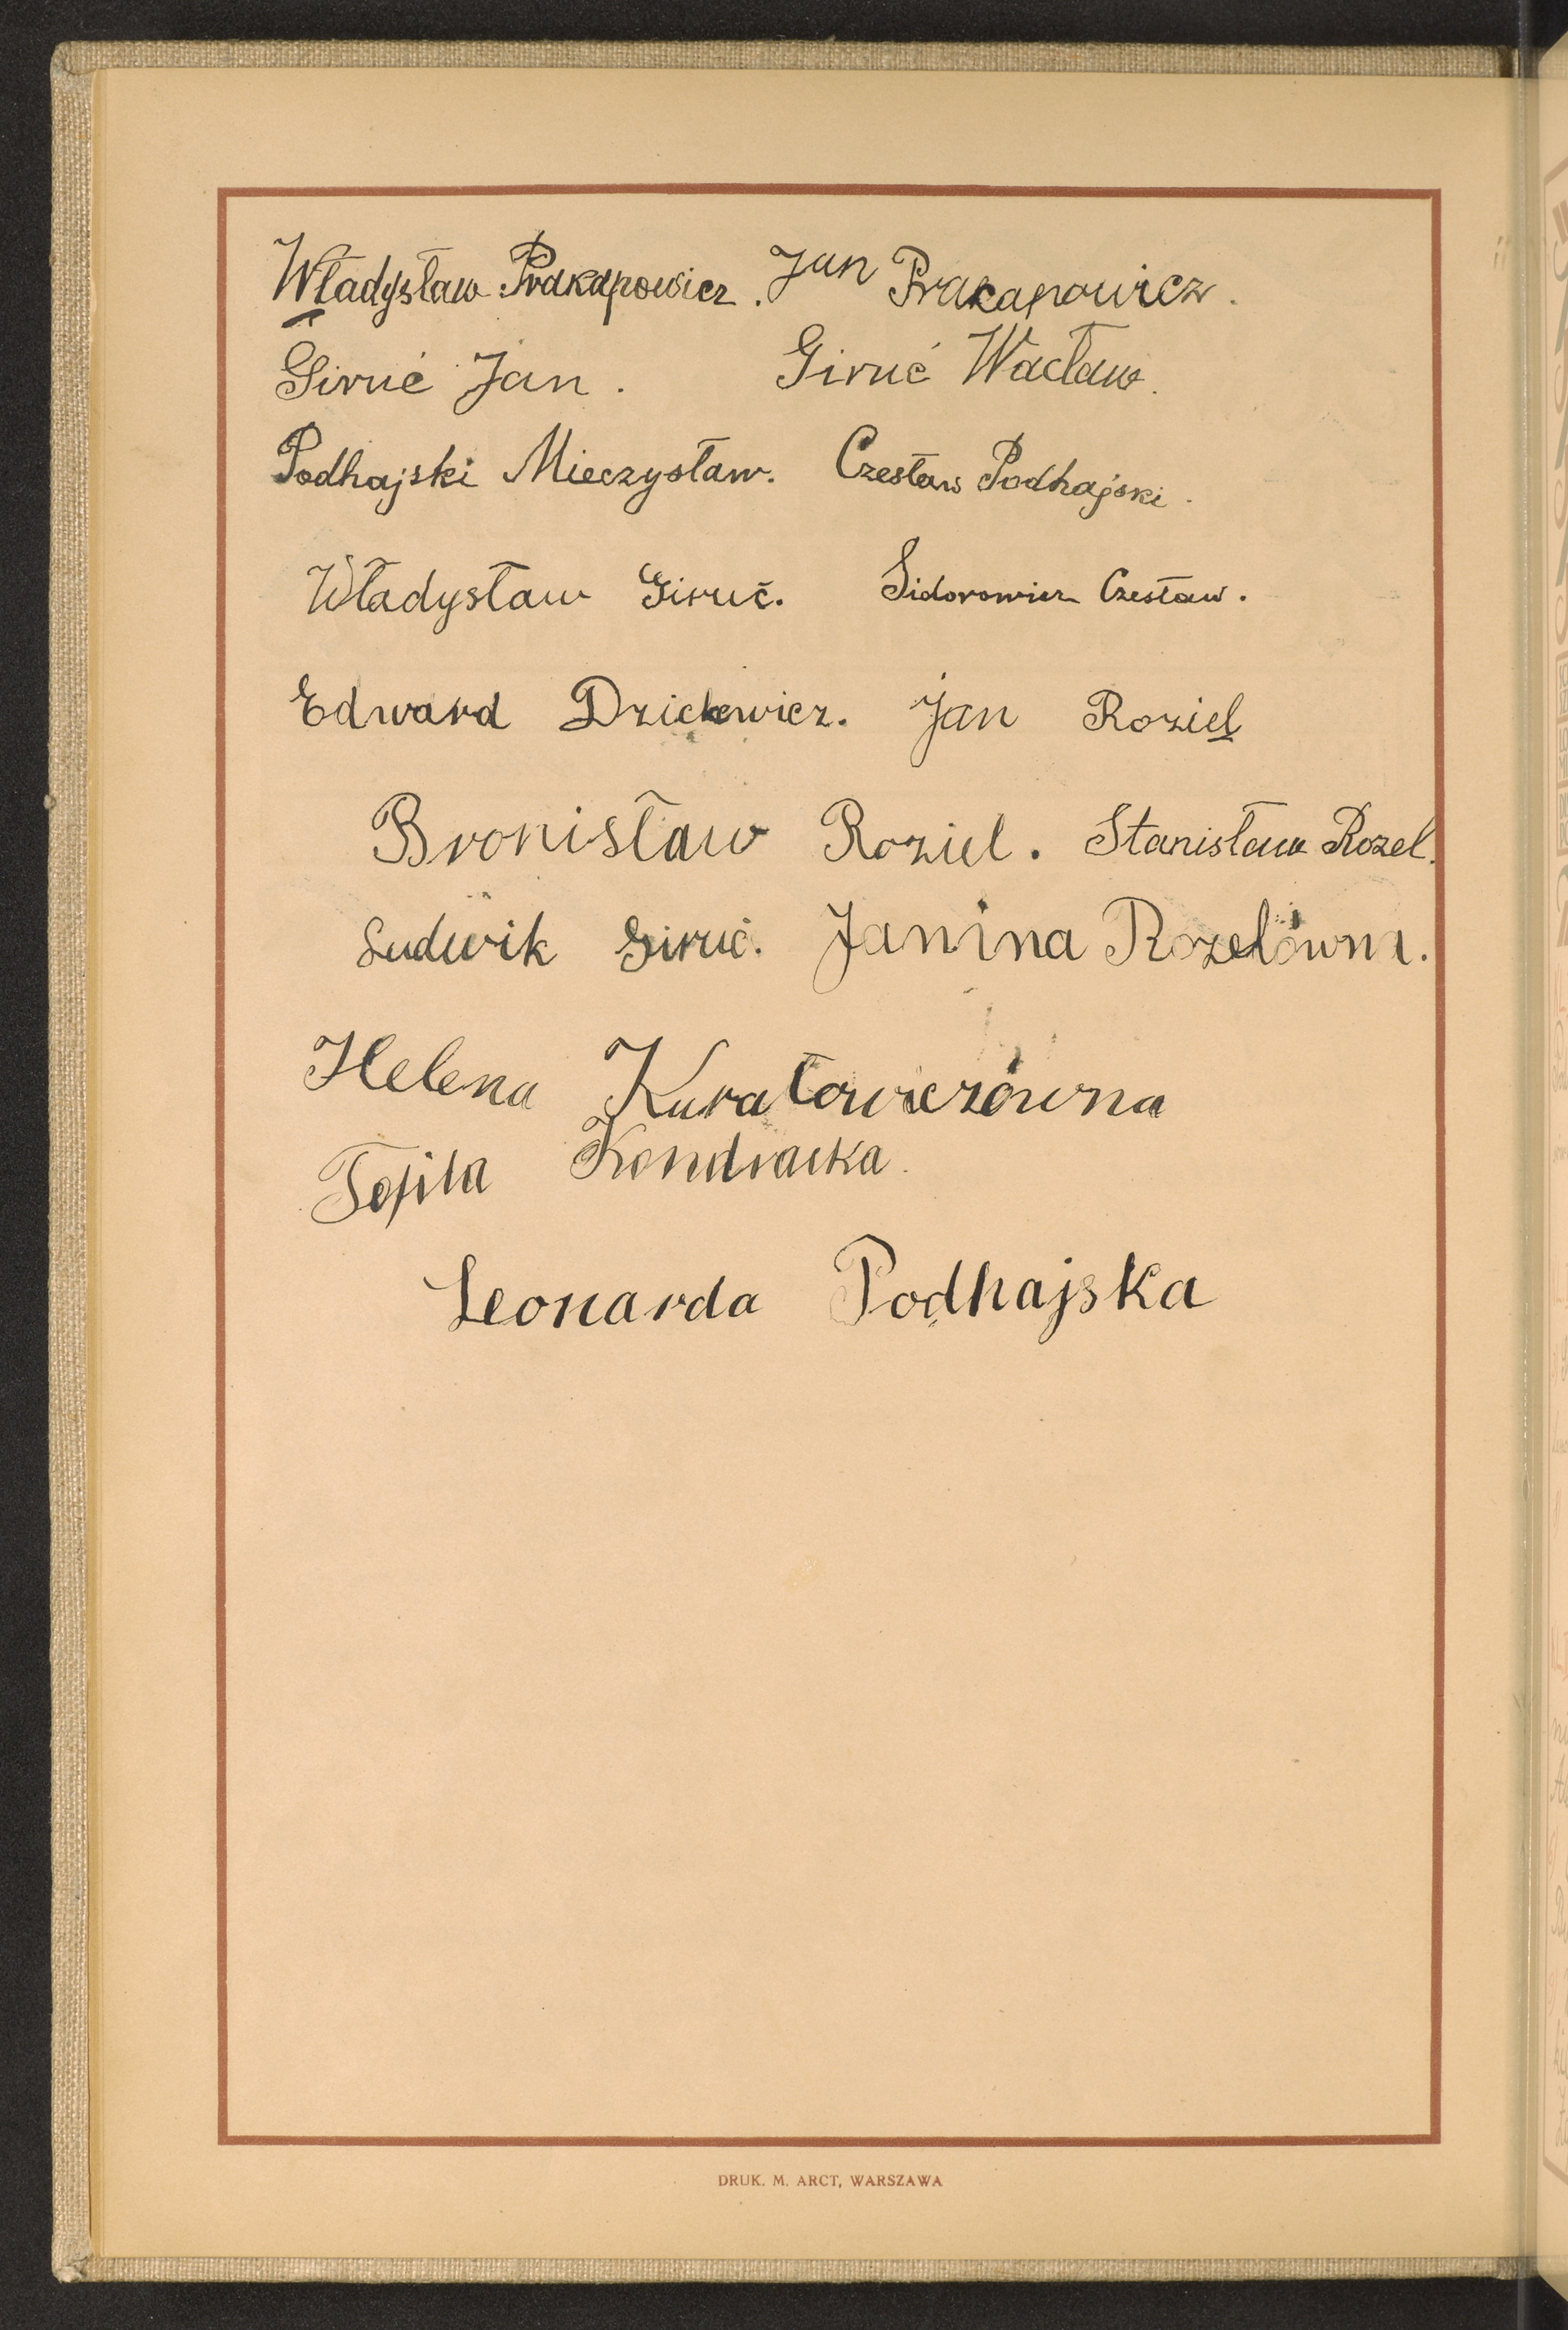 Władysław Prakapowicz. Jan Prakapowicz.
Giruć Jan. Giruć Wacław.
Podhajski Mieczysław. Czesław Podhajski.
Władysław Giruć. Sidorowicz Czesław.
Edward Dzickewicz. Jan Roziel
Bronisław Roziel. Stanisław Rozel.
Ludwik Giruć. Janina Rozelówna.
Helena Kurałowiczówna
Tofila Kondracka.
Leonarda Podhajska
DRUK. M. ARCT, WARSZAWA